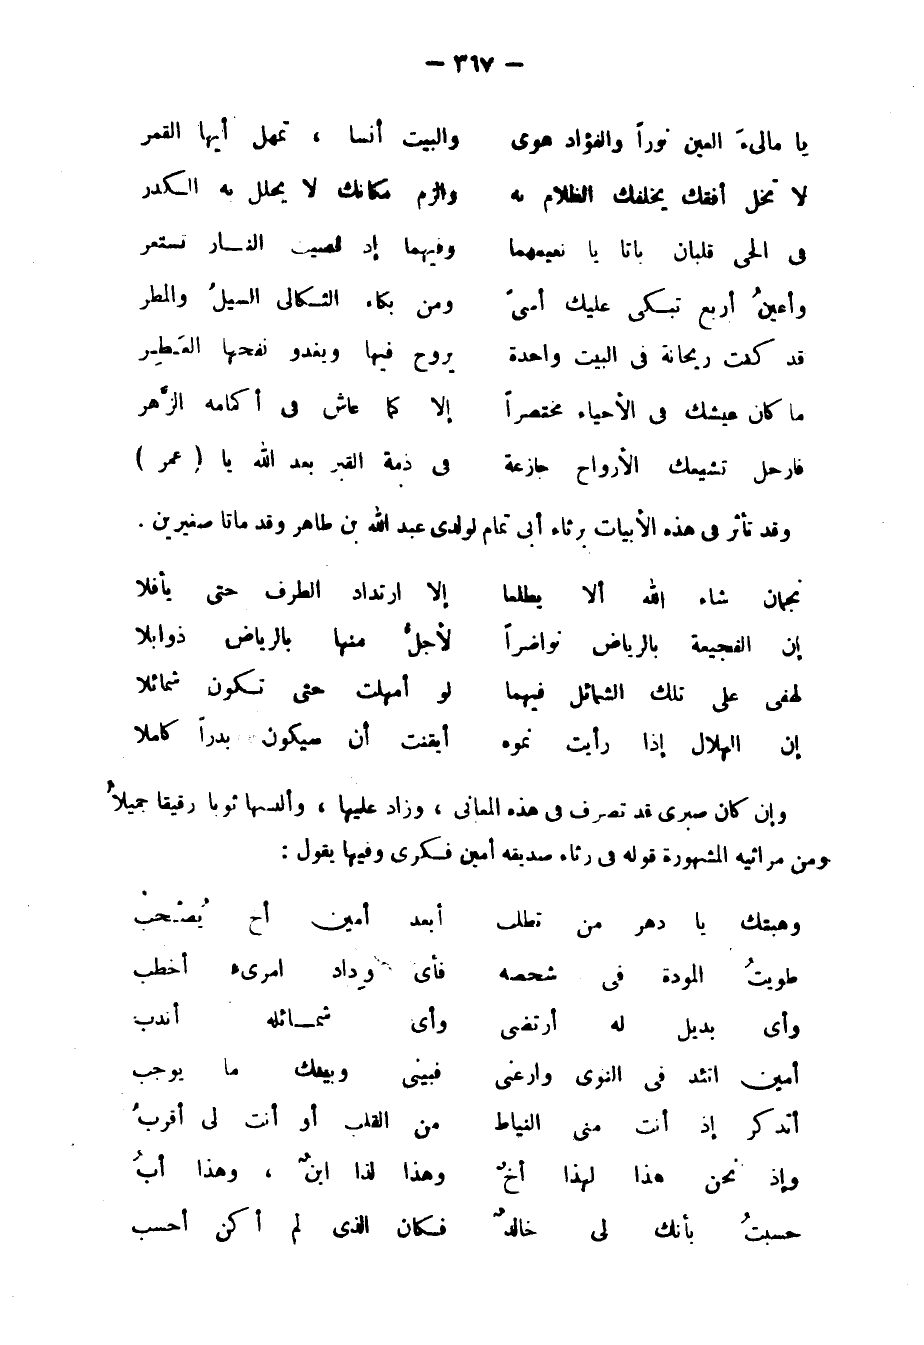 — ٣٦٧ —
يا مالىءَ العين نوراً والفؤاد هوى والبيت أنسا ، تمهل أيها القمر
لا تخل أفقك يخلفك الظلام به والزم مكانك لا يحلل به الكدر
فى الحى قلبان باتا يا نعيمهما وفيهما إذ قضيت النــار تستعر
وأعينُ أربع تبكى عليك أسىً ومن بكاء الثكالى السيلُ والمطر
قد كنت ريحانة فى البيت واحدة يروح فيها ويغدو نفحها العَـطِـر
ما كان عيشك فى الأحياء مختصراً إلا كما عاش فى أكمامه الزَّهر
فارحل تشيعك الأرواح جازعة فى ذمة القبر بعد الله يا ( عمر )
وقد تأثر فى هذه الأبيات برثاء أبى تمام لولدى عبد الله بن طاهر وقد ماتا صغيرين .
نجمان شاء الله ألا يطلعا إلا ارتداد الطرف حتى يأفلا
إن الفجيعة بالرياض نواضراً لأجلُّ منها بالرياض ذوابلا
لهفى على تلك الشمائل فيهما لو أمهلت حتى تكون شمائلا
إن الهلال إذا رأيت نموه أيقنت أن سيكون بدراً كاملا
وإن كان صبرى قد تصرف فى هذه المعانى ، وزاد عليها ، وألبسها ثوبا رقيقا جميلاً
ومن مراثيه المشهورة قوله فى رثاء صديقه أمين فكرى وفيها يقول :
وهبتك يا دهر من تطلب أبعد أمين أخ يُصْـحَب
طويتُ المودة فى شخصه فأى وداد امرىء أخطب
وأى بديل له أرتضى وأى شمــائله أندب
أمين اتئد فى النوى وارعنى فبينى وبينك ما يوجب
أتذكر إذ أنت منى النياط من القلب أو أنت لى أقربُ
وإذ نحن هذا لهذا أخٌ وهذا لذا ابنٌ ، وهذا أبُ
حسبتُ بأنك لى خالدٌ فكان الذى لم أكن أحسب